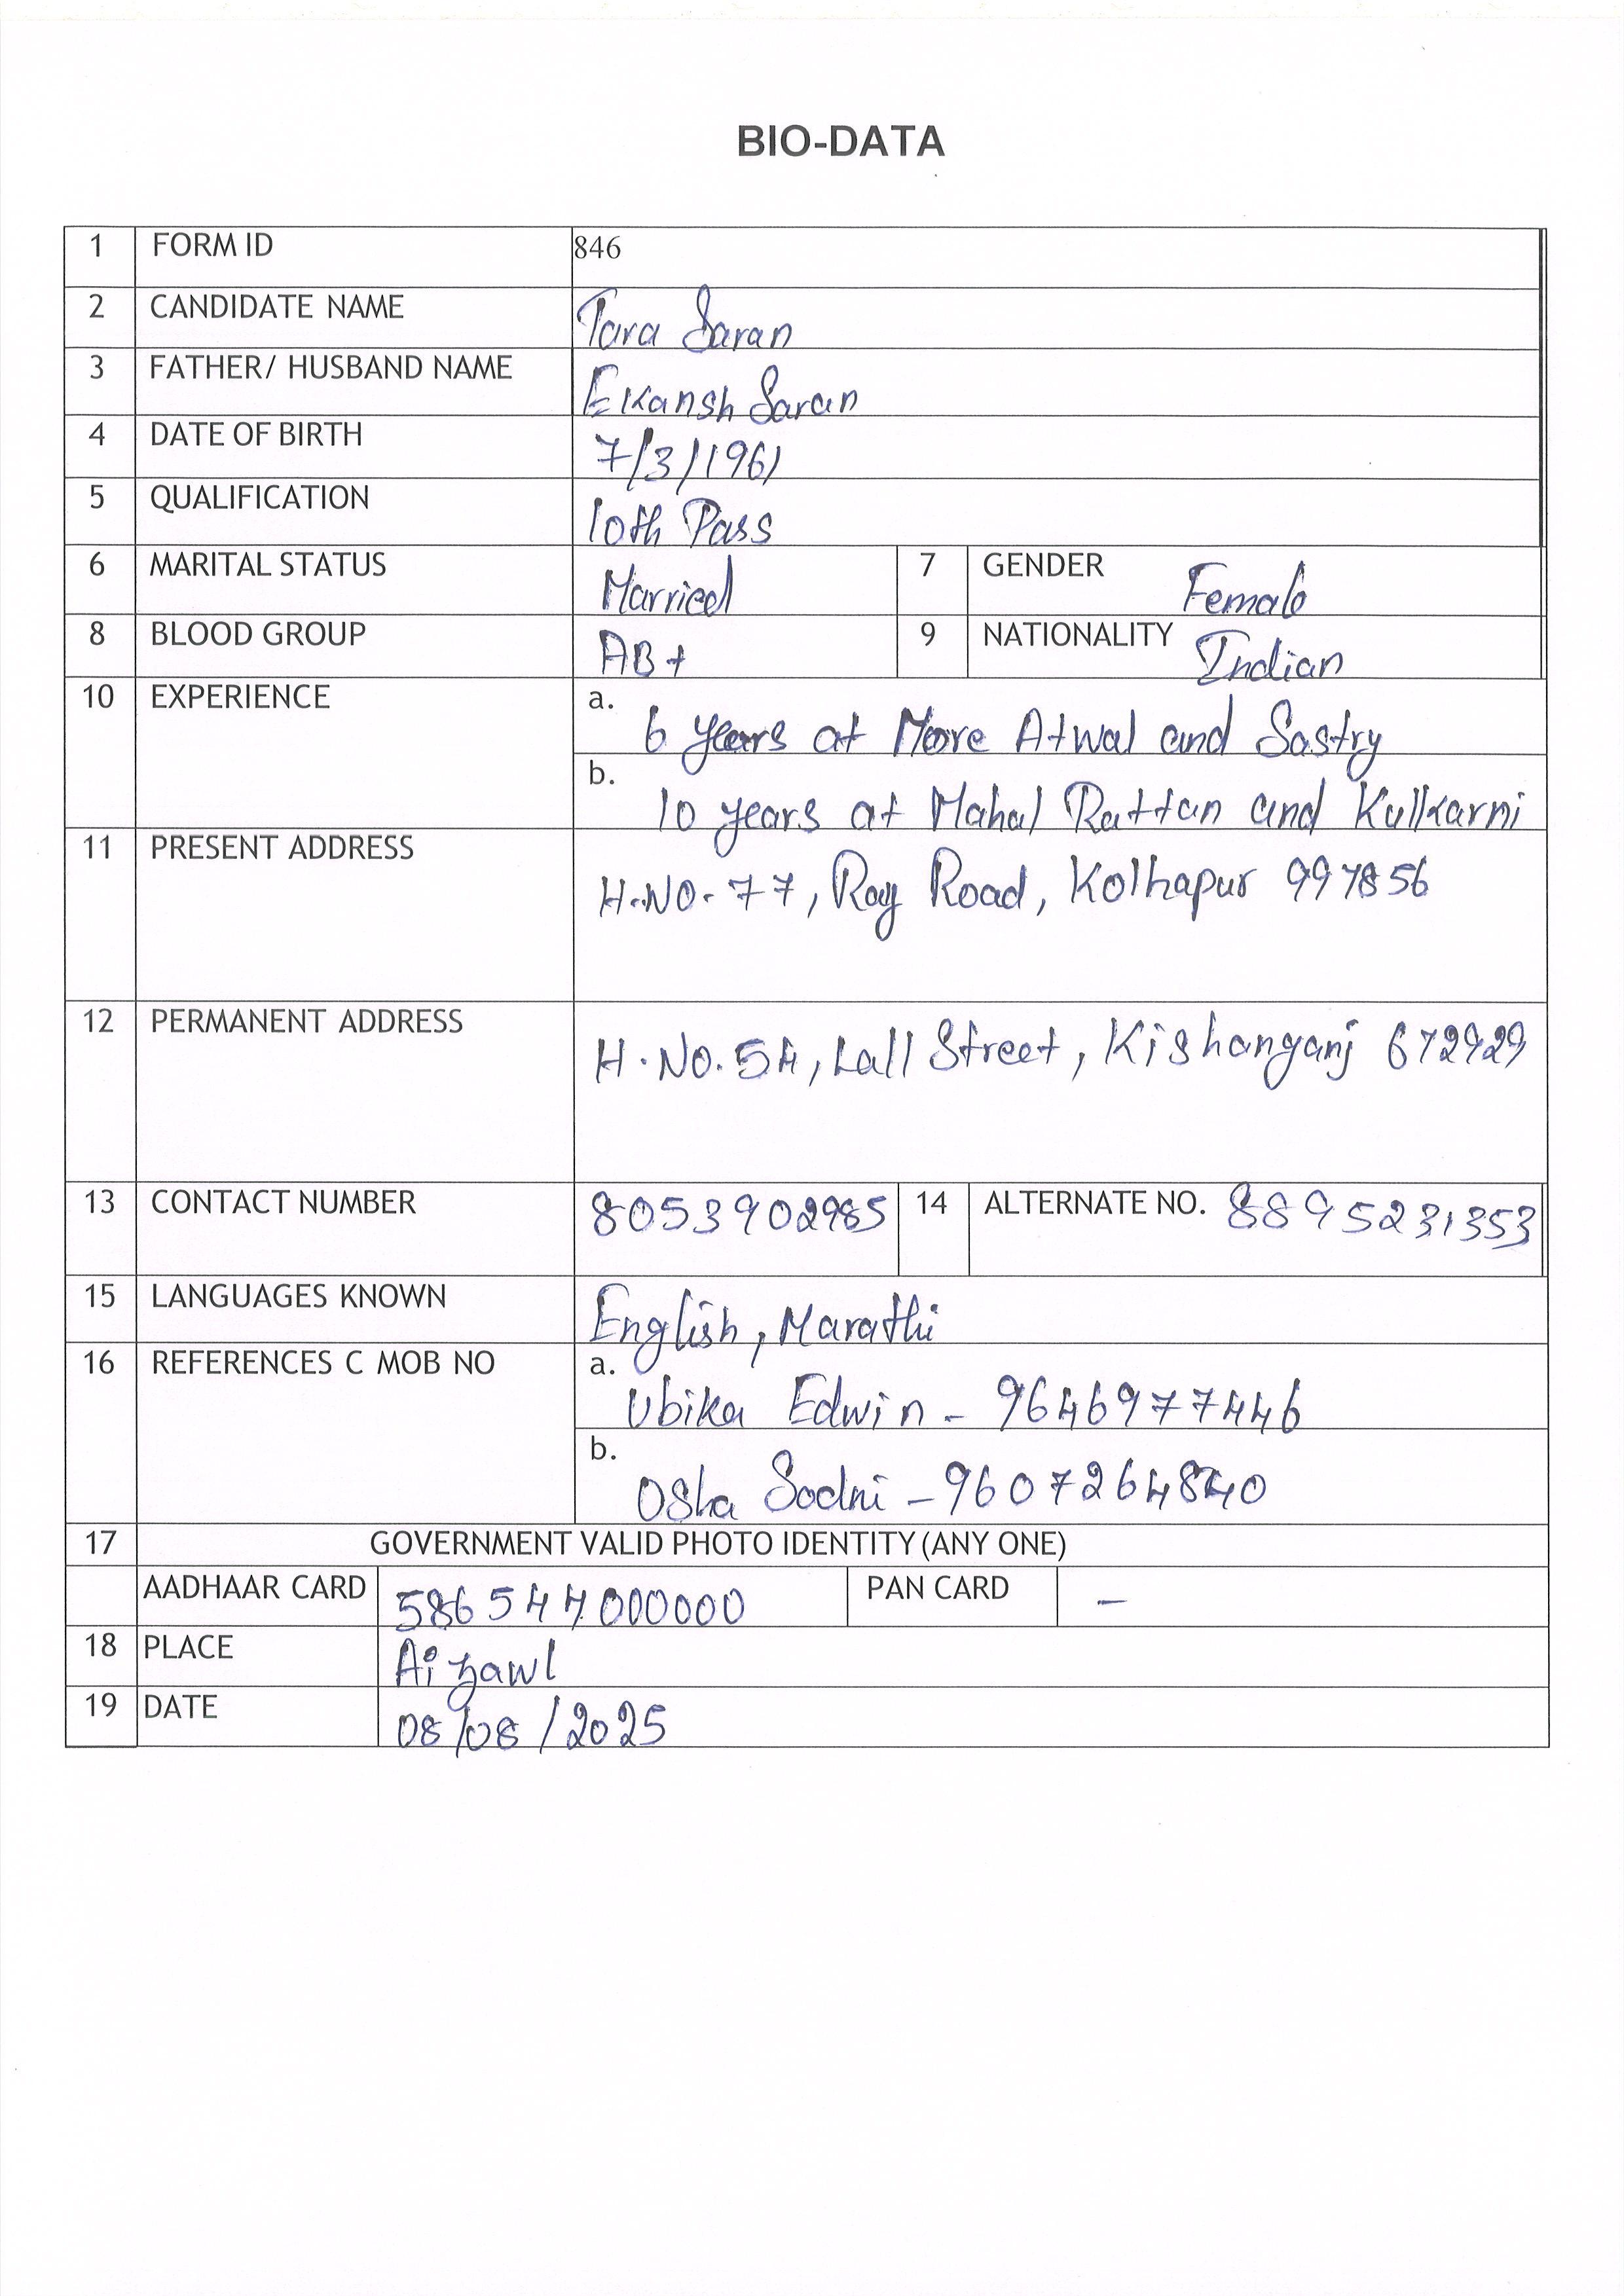 BIO-DATA
1 FORM ID 846
2 CANDIDATE NAME Tara Saran
3 FATHER/ HUSBAND NAME Ekansh Saran
4 DATE OF BIRTH 7/3/1961
5 QUALIFICATION 10th Pass
6 MARITAL STATUS Married 7 GENDER Female
8 BLOOD GROUP AB+ 9 NATIONALITY Indian
10 EXPERIENCE a. 6 years at More Atwal and Sastry
b. 10 years at Mahal Rattan and Kulkarni
11 PRESENT ADDRESS H.NO-77, Ray Road, Kolhapur 997856
12 PERMANENT ADDRESS H.No.54, Lall Street, Kishanganj 672929
13 CONTACT NUMBER 8053902985 14 ALTERNATE NO. 8895231353
15 LANGUAGES KNOWN English, Marathi
16 REFERENCES C MOB NO a. Ubika Edwin - 9646977446
b. Osha Sodni - 9607264840
17 GOVERNMENT VALID PHOTO IDENTITY (ANY ONE)
AADHAAR CARD 586544000000 PAN CARD -
18 PLACE Aizawl
19 DATE 08/08/2025